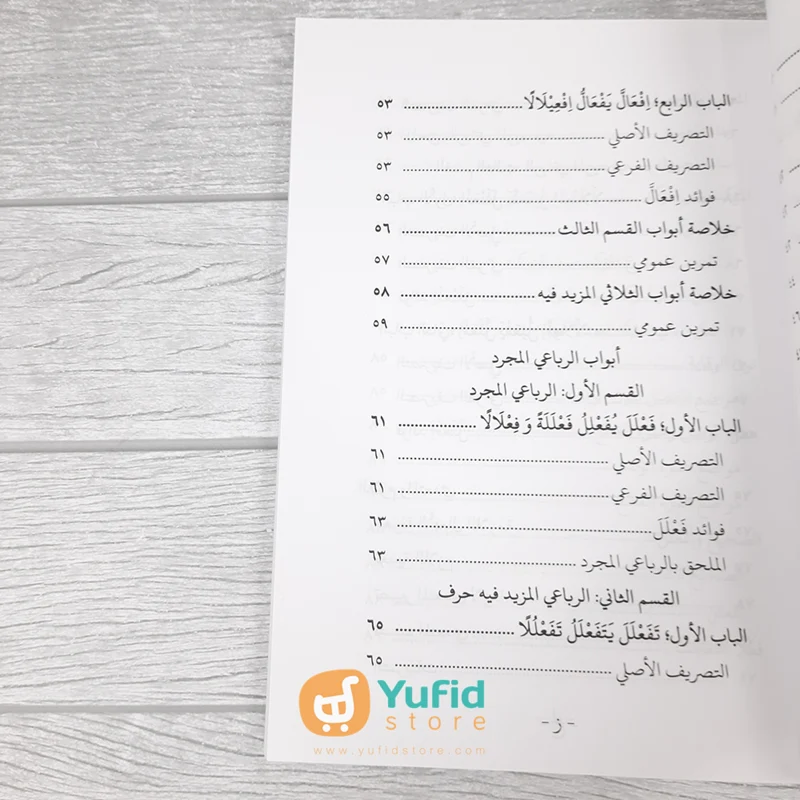 الباب الرابع؛ اِفْعَالَّ يَفْعَالُّ اِفْعِيْلَالًا .............................. ٥٣
التصريف الأصلي .................................................. ٥٣
التصريف الفرعي .................................................. ٥٣
فوائد اِفْعَالَّ .................................................. ٥٥
خلاصة أبواب القسم الثالث ...................................... ٥٦
تمرين عمومي .................................................. ٥٧
خلاصة أبواب الثلاثي المزيد فيه .................................. ٥٨
تمرين عمومي .................................................. ٥٩
أبواب الرباعي المجرد
القسم الأول: الرباعي المجرد
الباب الأول؛ فَعْلَلَ يُفَعْلِلُ فَعْلَلَةً وَ فِعْلَالًا .................... ٦١
التصريف الأصلي .................................................. ٦١
التصريف الفرعي .................................................. ٦١
فوائد فَعْلَلَ .................................................. ٦٣
الملحق بالرباعي المجرد ........................................ ٦٣
القسم الثاني: الرباعي المزيد فيه حرف
الباب الأول؛ تَفَعْلَلَ يَتَفَعْلَلُ تَفَعْلُلًا .............................. ٦٥
التصريف الأصلي .................................................. ٦٥
- ز -
Yufid
store
www.yufidstore.com